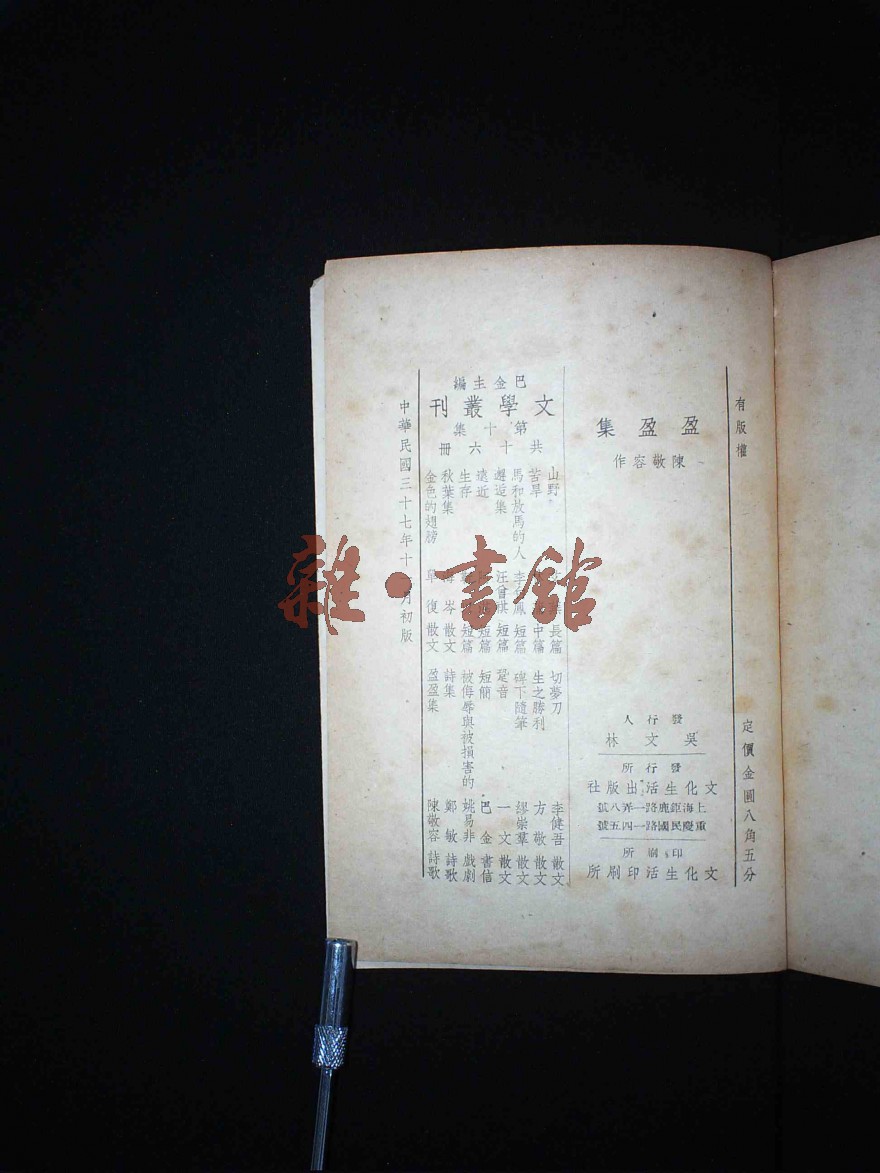 有版權
定價金圓八角五分
盈盈集
陳敬容作
發行人
吳文林
發行所
文化生活出版社
上海鉅鹿路一弄八號
重慶民國路一四五號
印刷所
文化生活印刷所
巴金主編
文學叢刊
第十集
共十六冊
山野 長篇
苦旱 中篇
馬和放馬的人 李 鳳 短篇
邂逅集 汪曾祺 短篇
遠近 短篇
生存 短篇
秋葉集 岑 散文
金色的翅膀 單復 散文
切夢刀 李健吾 散文
生之勝利 方敬 散文
碑下隨筆 繆崇羣 散文
跫音 一文 散文
短簡 巴金 書信
被侮辱與被損害的 姚易非 戲劇
詩集 鄭敏 詩歌
盈盈集 陳敬容 詩歌
中華民國三十七年十 月初版
雜·書館